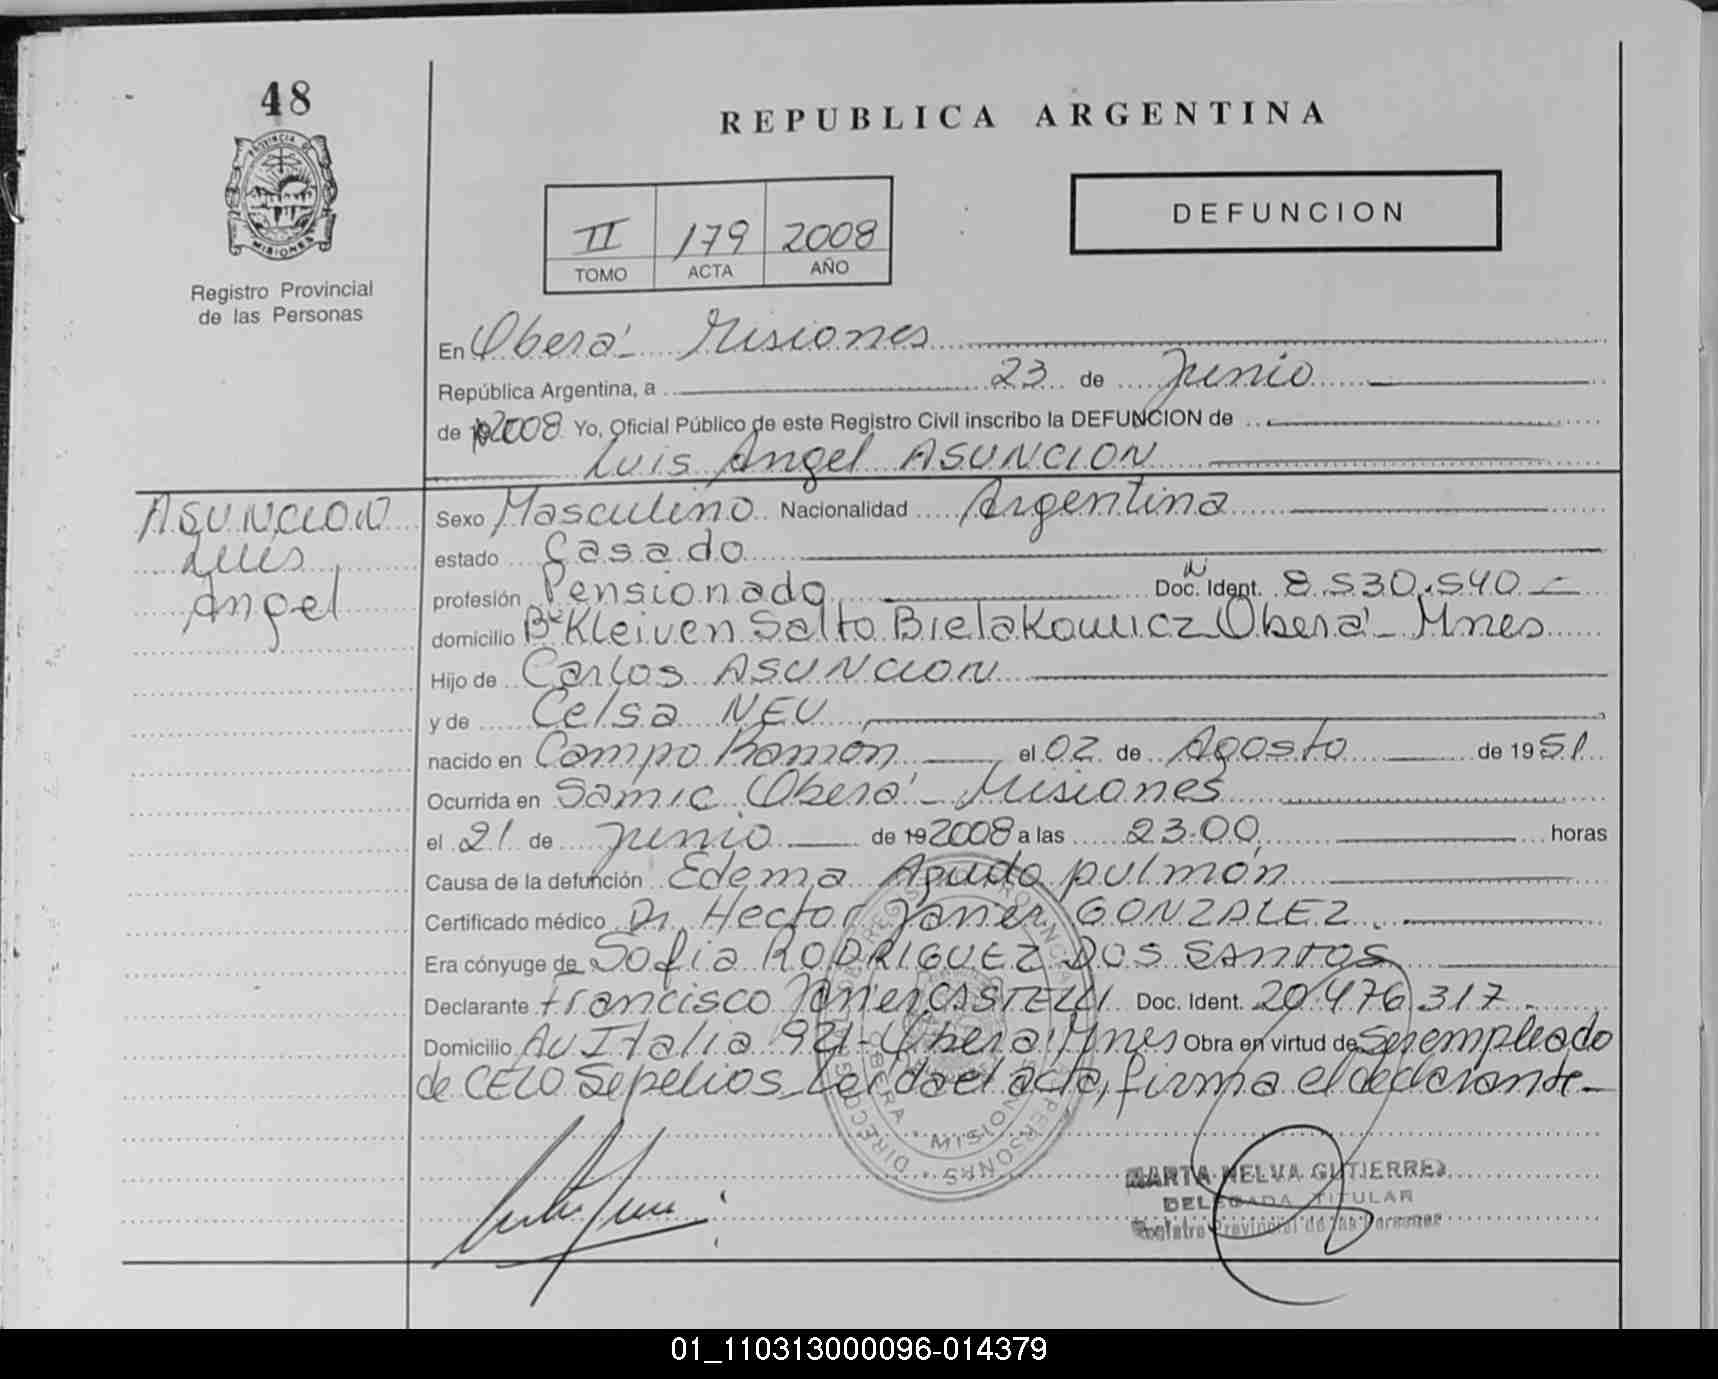 48
PROVINCIA DE
MISIONES
Registro Provincial
de las Personas
REPUBLICA ARGENTINA
II 179 2008
TOMO ACTA AÑO
DEFUNCION
En Oberá - Misiones
República Argentina, a 23 de Junio
de 2008 Yo, Oficial Público de este Registro Civil inscribo la DEFUNCION de
Luis Angel ASUNCION
ASUNCION
Luis
Angel
Sexo Masculino Nacionalidad Argentina
estado Casado
profesión Pensionado Doc. Ident. 8.530.540
domicilio Bº Kleiven Salto Bielakowicz Oberá - Mnes
Hijo de Carlos ASUNCION
y de Celsa NEU
nacido en Campo Ramón el 02 de Agosto de 1951
Ocurrida en Samic Oberá - Misiones
el 21 de Junio de 19 2008 a las 23:00 horas
Causa de la defunción Edema Agudo pulmón
Certificado médico Dr. Hector Javier GONZALEZ
Era cónyuge de Sofia RODRIGUEZ DOS SANTOS
Declarante Francisco Javier CASTELLI Doc. Ident. 20.476.317
Domicilio Av Italia 921 - Oberá Mnes Obra en virtud de Ser empleado
de CELO Sepelios. Leida el acta, firma el declarante
OBERA MISIONES
MARTA NELVA GUTIERREZ
DELEGADA TITULAR
Registro Provincial de las Personas
01_110313000096-014379